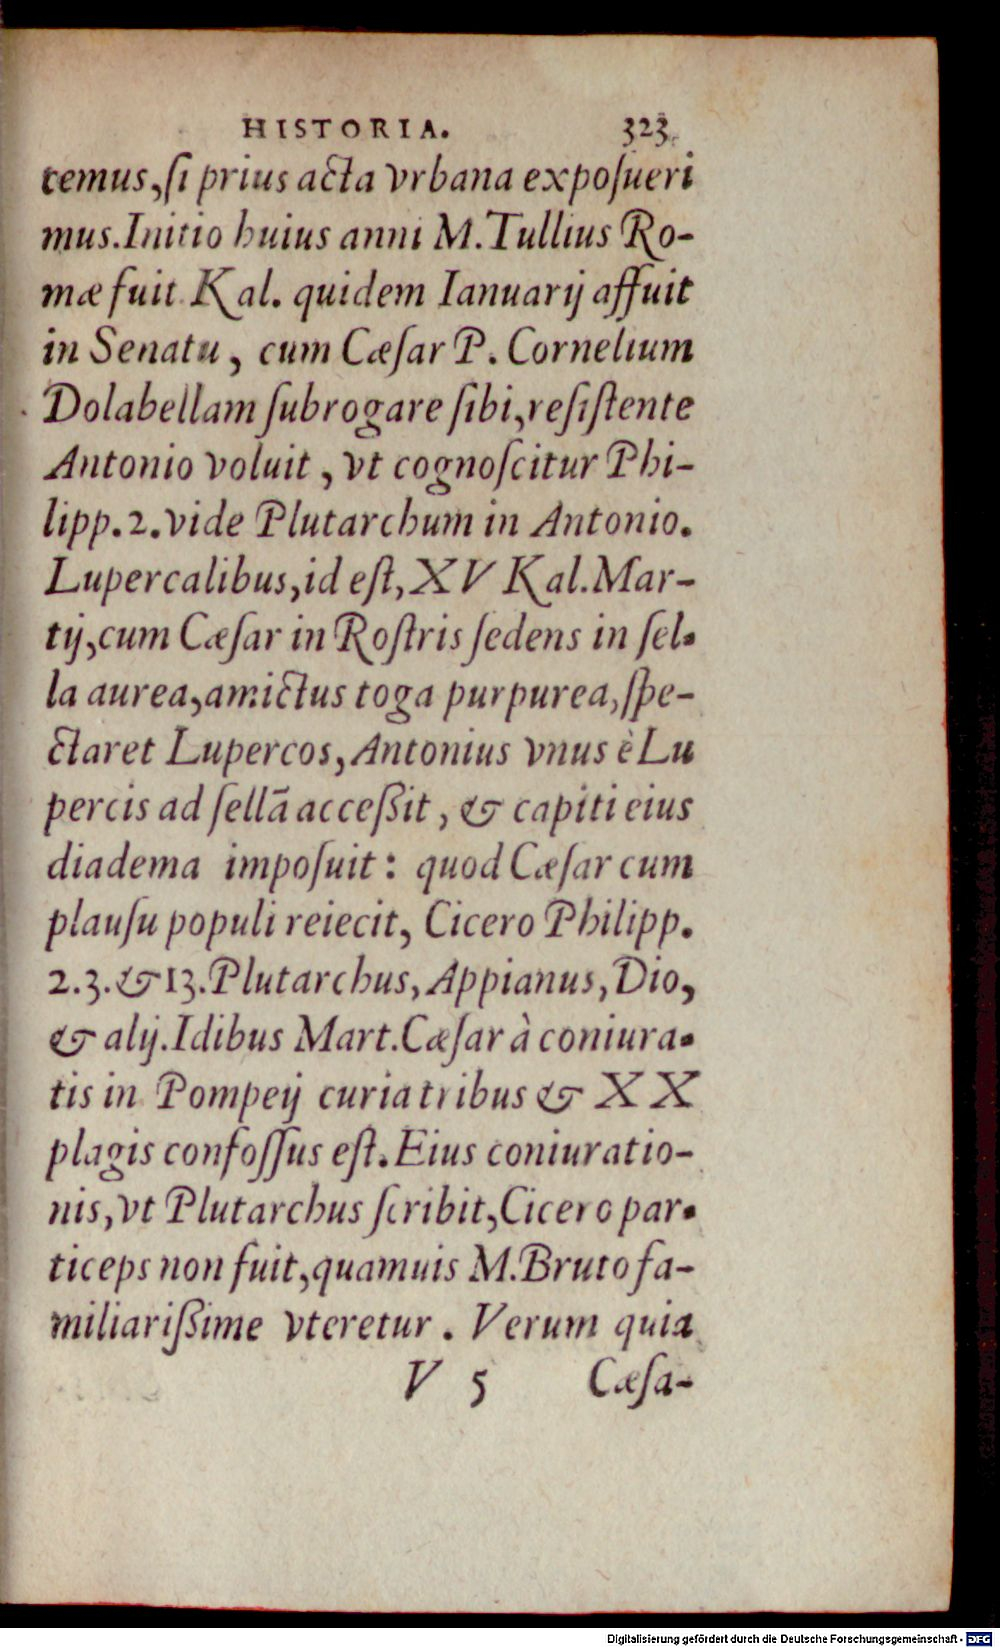 HISTORIA. 323
temus, ſi prius acta vrbana expoſueri
mus. Initio huius anni M. Tullius Ro-
mæ fuit Kal. quidem Ianuarij affuit
in Senatu, cum Cæſar P. Cornelium
Dolabellam ſubrogare ſibi, reſiſtente
Antonio voluit, vt cognoſcitur Phi-
lipp. 2. vide Plutarchum in Antonio.
Lupercalibus, id eſt, XV Kal. Mar-
tij, cum Cæſar in Roſtris ſedens in ſel-
la aurea, amictus toga purpurea, ſpe-
ctaret Lupercos, Antonius vnus è Lu
percis ad ſellā acceßit, & capiti eius
diadema impoſuit: quod Cæſar cum
plauſu populi reiecit, Cicero Philipp.
2. 3. & 13. Plutarchus, Appianus, Dio,
& alij. Idibus Mart. Cæſar à coniura-
tis in Pompeij curia tribus & XX
plagis confoſſus eſt. Eius coniuratio-
nis, vt Plutarchus ſcribit, Cicero par-
ticeps non fuit, quamuis M. Bruto fa-
miliarißime vteretur. Verum quia
V 5 Cæſa-
Digitalisierung gefördert durch die Deutsche Forschungsgemeinschaft - DFG